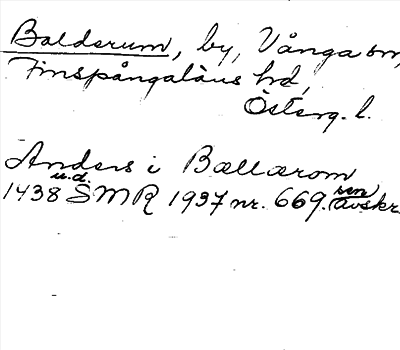 Balderum, by, Vånga sn,
Finspångaläns hd,
Österg. l.
Anders i Bællærom
1438 u.d. SMR 1937 nr. 669. sen avskr.